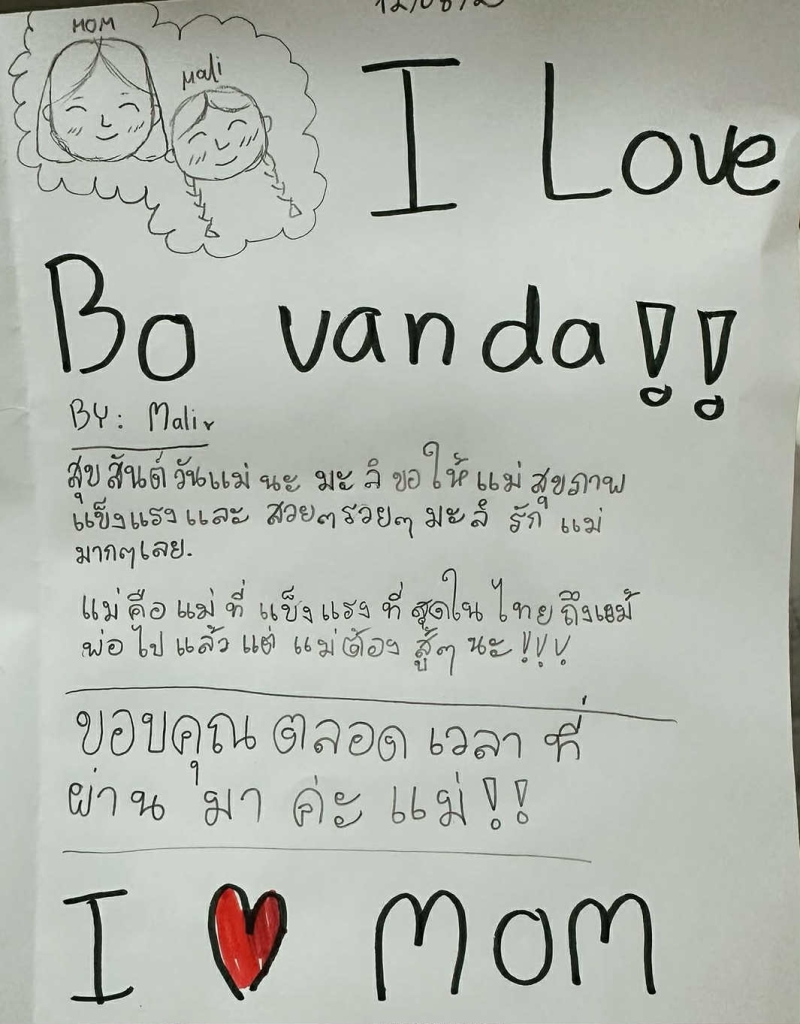 12/08/2
MOM
Mali
I Love
Bo vanda!!
BY: Mali
สุขสันต์วันแม่นะ มะลิขอให้แม่สุขภาพ
แข็งแรงและ สวยๆรวยๆ มะลิ รัก แม่
มากๆเลย.
แม่คือแม่ที่ แข็งแรงที่สุดในไทยถึงแม้
พ่อไปแล้วแต่ แม่ต้อง สู้ๆ นะ!!!
ขอบคุณ ตลอด เวลา ที่
ผ่าน มา ค่ะ แม่!!
I ❤ MOM